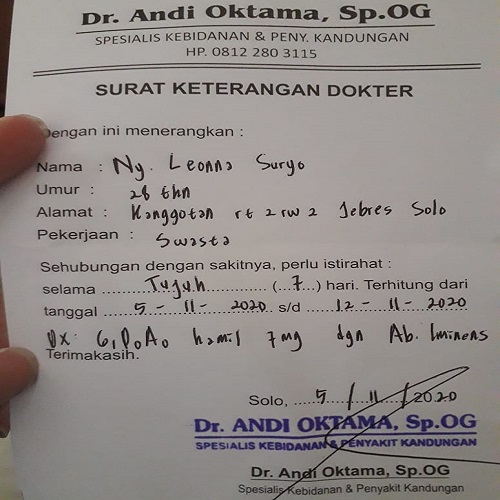 Dr. Andi Oktama, Sp.OG
SPESIALIS KEBIDANAN & PENY. KANDUNGAN
HP. 0812 280 3115
SURAT KETERANGAN DOKTER
Dengan ini menerangkan :
Nama : Ny. Leonna Suryo
Umur : 28 thn
Alamat : Kanggotan rt 2 rw 2 Jebres Solo
Pekerjaan : Swasta
Sehubungan dengan sakitnya, perlu istirahat :
selama ....Tujuh....(..7..) hari. Terhitung dari
tanggal ....5 - 11 - 2020 s/d 12 - 11 - 2020
Dx: G1P0A0 hamil 7mg dgn Ab. Iminens
Terimakasih.
Solo, ....5../..11../2020
Dr. ANDI OKTAMA, Sp.OG
SPESIALIS KEBIDANAN & PENYAKIT KANDUNGAN
Dr. Andi Oktama, Sp.OG
Spesialis Kebidanan & Penyakit Kandungan